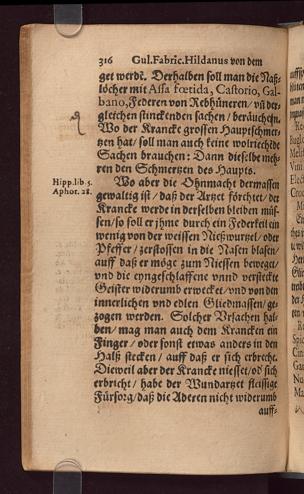 316 Gul. Fabric. Hildanus von dem
get werdē. Derhalben soll man die Naß-
löcher mit Assa fœtida, Castorio, Gal-
bano, Federen von Rebhüneren / vn̄ der-
gleichen stinckenden sachen / beräuchern.
Wo der Krancke grossen Hauptschmer-
tzen hat / soll man auch keine wolriechēde
Sachen brauchen: Dann dieselbe meh-
ren den Schmertzen des Haupts.
Hipp. lib. 5.
Aphor. 28.
Wo aber die Ohnmacht dermassen
gewaltig ist / daß der Artzet förchtet / der
Krancke werde in derselben bleiben müs-
sen / so soll er jhme durch ein Federkeil ein
wenig von der weissen Nießwurtzel / oder
Pfeffer / zerstossen in die Nasen blasen /
auff daß er möge zum Niessen beweget /
vnd die eyngeschlaffene vnnd versteckte
Geister widerumb erwecket / vnd von den
innerlichen vnd edlen Gliedmassen / ge-
zogen werden. Solcher Vrsachen hal-
ben / mag man auch dem Krancken ein
Finger / oder sonst etwas anders in den
Halß stecken / auff daß er sich erbreche.
Dieweil aber der Krancke niesset / od' sich
erbricht / habe der Wundartzet fleissige
Fürsorg / daß die Aderen nicht widerumb
auff-